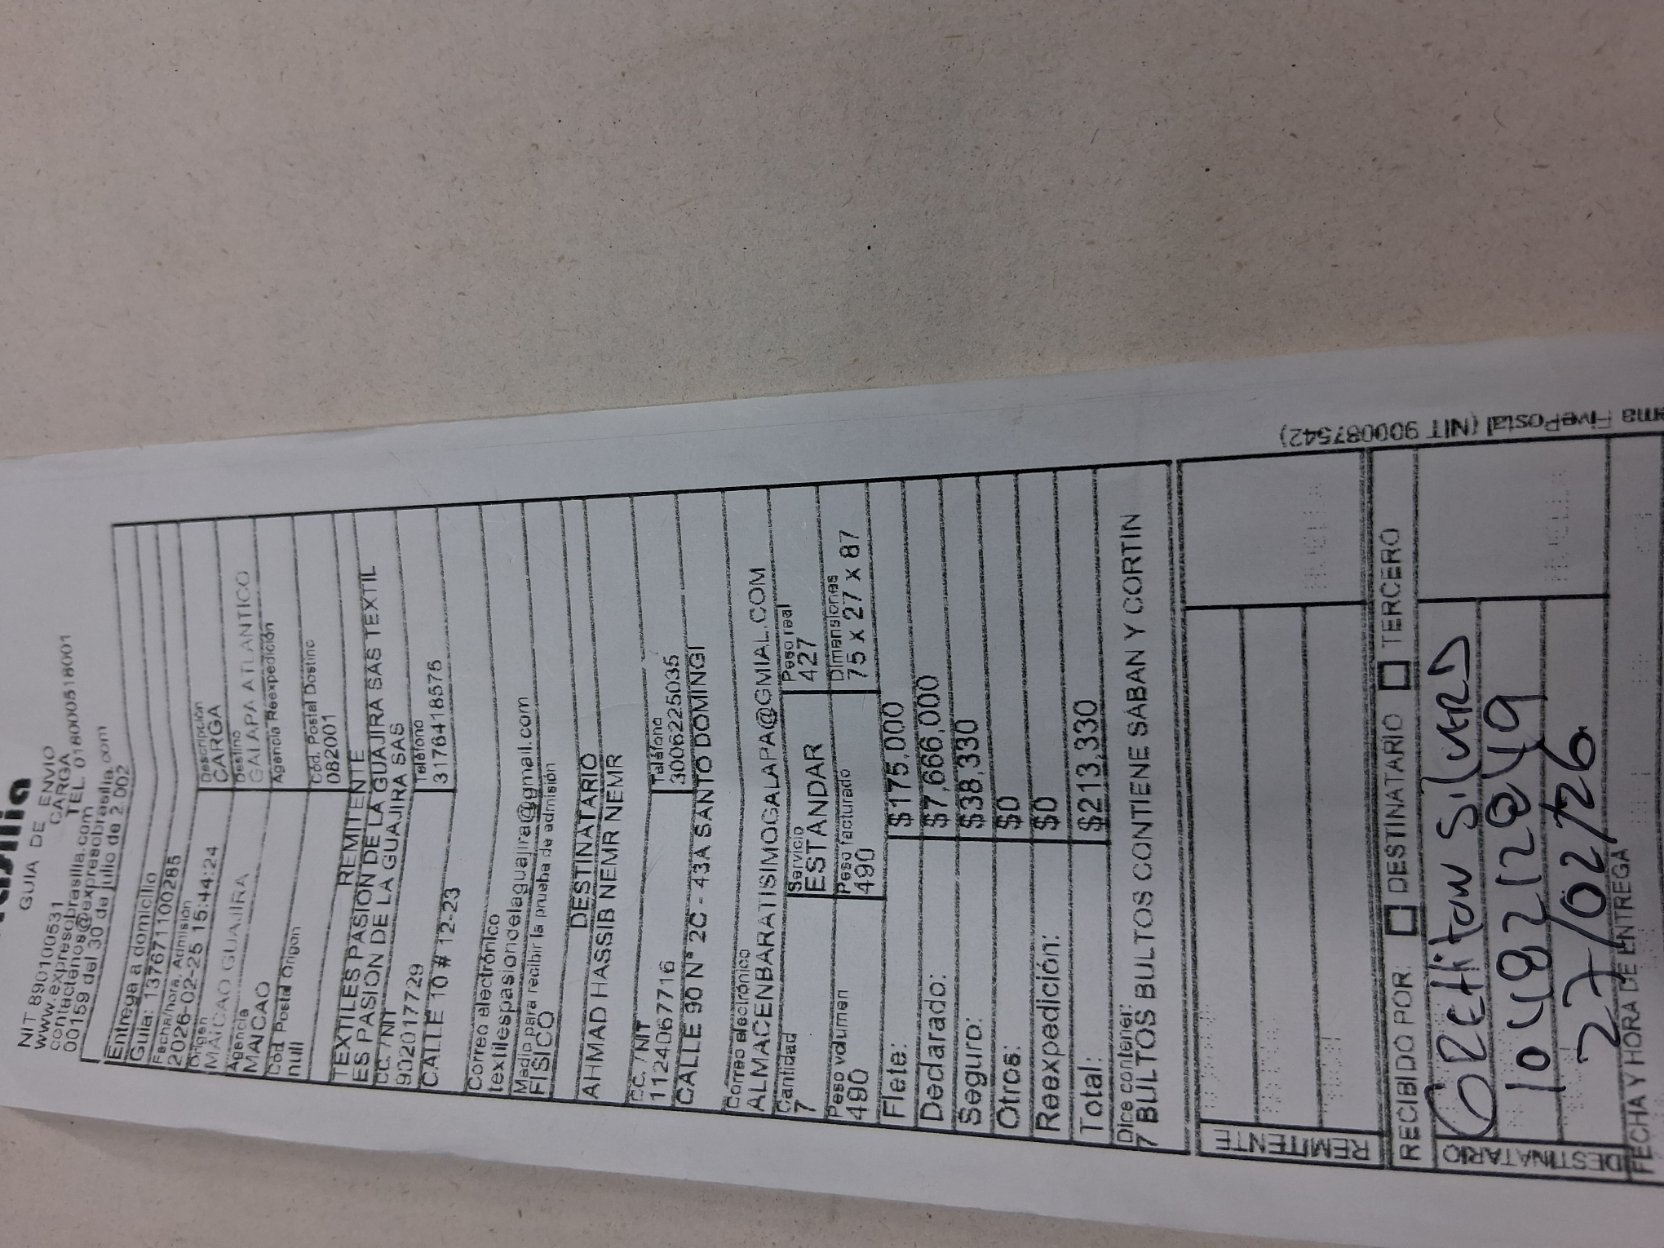 GUIA DE ENVIO
NIT 890100531 CARGA
www.expresobrasilia.com TEL. 018000518001
contactenos@expresobrasilia.com
00159 del 30 de julio de 2.002
Entrega a domicilio
Guía: 137671100285
Fecha/hora Admisión
2026-02-25 15:44:24
Origen Descripción
MAICAO GUAJIRA CARGA
Agencia Destino
MAICAO GALAPA ATLANTICO
Cód. Postal Origen Agencia Reexpedición
null
Cód. Postal Destino
082001
REMITENTE
TEXTILES PASION DE LA GUAJIRA SAS TEXTIL
ES PASION DE LA GUAJIRA SAS
CC. /NIT Teléfono
902017729 3176418575
CALLE 10 # 12-23
Correo electrónico
textilespasiondelaguajira@gmail.com
Medio para recibir la prueba de admisión
FISICO
DESTINATARIO
AHMAD HASSIB NEMR NEMR
CC. /NIT Teléfono
1124067716 3006225035
CALLE 90 N° 2C - 43A SANTO DOMINGI
Correo electrónico
ALMACENBARATISIMOGALAPA@GMIAL.COM
Cantidad Servicio Peso real
7 ESTANDAR 427
Peso volumen Peso facturado Dimensiones
490 490 75 x 27 x 87
Flete: $175,000
Declarado: $7,666,000
Seguro: $38,330
Otros: $0
Reexpedición: $0
Total: $213,330
Dice contener:
7 BULTOS BULTOS CONTIENE SABAN Y CORTIN
REMITENTE
RECIBIDO POR: DESTINATARIO TERCERO
DESTINATARIO
27/02/26
FECHA Y HORA DE ENTREGA
FivePostal (NIT 900087542)